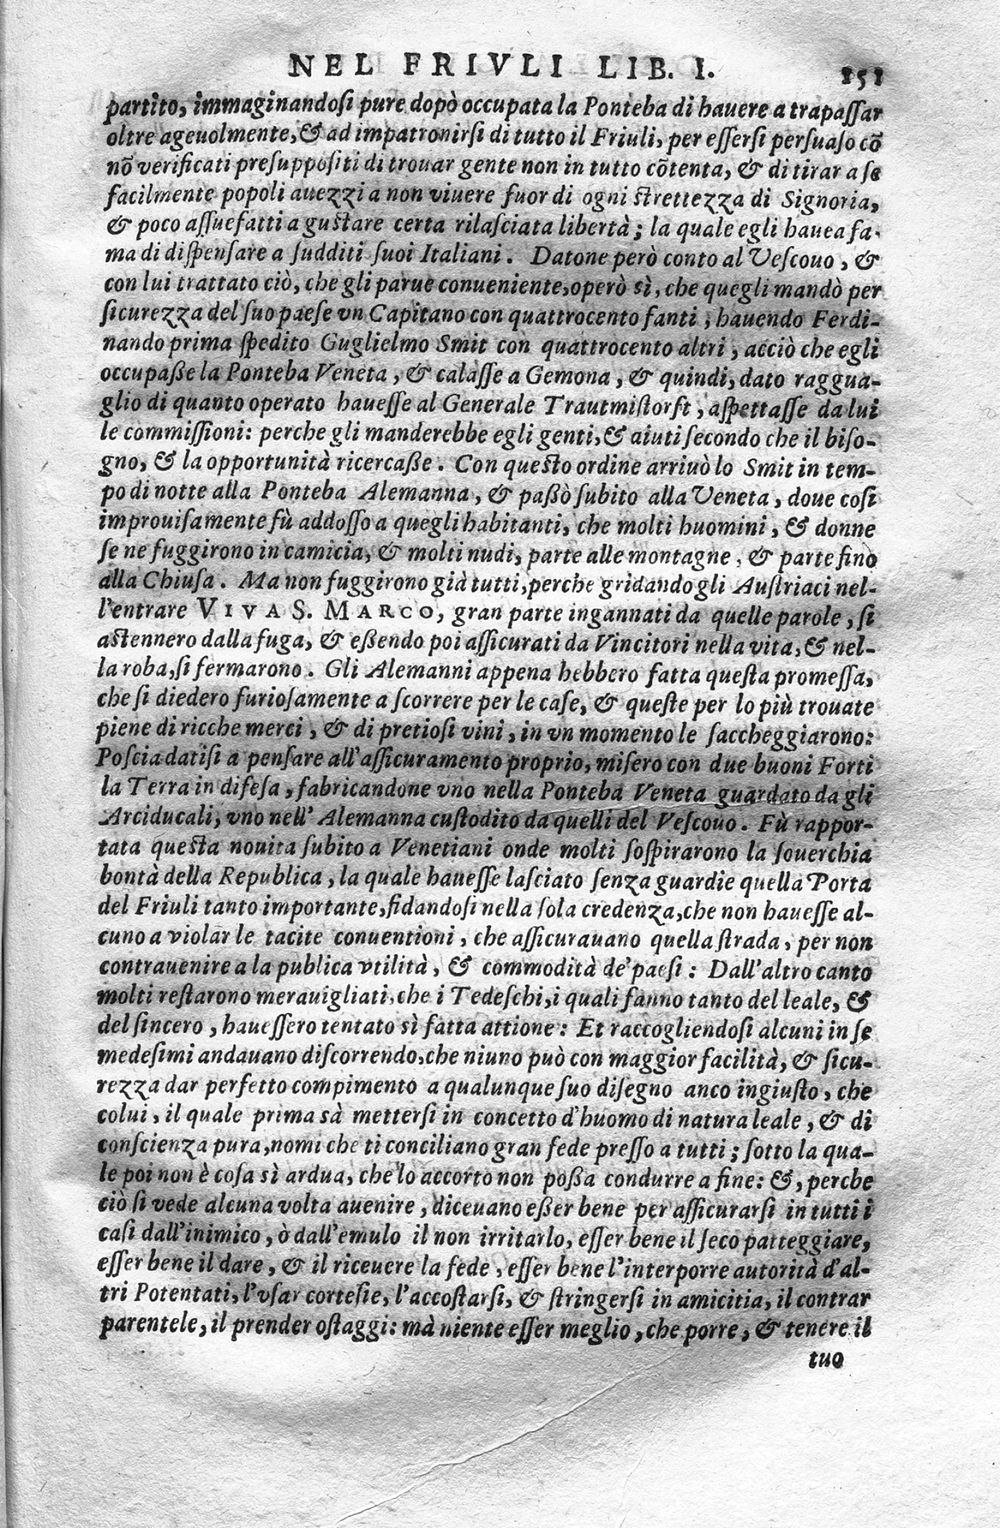 NEL FRIVLI LIB. I. 151
partito, immaginandosi pure dopò occupata la Ponteba di hauere a trapaſſar
oltre ageuolmente, & ad impatronirsi di tutto il Friuli, per eſſersi persuaſo cõ
nõ verificati preſuppoſiti di trouar gente non in tutto cõtenta, & di tirar a ſe
facilmente popoli auezzi a non viuere fuor di ogni ſtrettezza di Signoria,
& poco aſſuefatti a guſtare certa rilaſciata libertà; la quale egli hauea fa-
ma di diſpenſare a ſudditi ſuoi Italiani. Datone però conto al Veſcouo, &
con lui trattato ciò, che gli parue conueniente, operò sì, che quegli mandò per
ſicurezza del ſuo paeſe vn Capitano con quattrocento fanti, hauendo Ferdi-
nando prima ſpedito Guglielmo Smit con quattrocento altri, acciò che egli
occupaſſe la Ponteba Veneta, & calaſſe a Gemona, & quindi, dato raggua-
glio di quanto operato haueſſe al Generale Trautmiſtorft, aſpettaſſe da lui
le commiſſioni: perche gli manderebbe egli genti, & aiuti ſecondo che il biſo-
gno, & la opportunità ricercaſſe. Con queſto ordine arriuò lo Smit in tem-
po di notte alla Ponteba Alemanna, & paſſò ſubito alla Veneta, doue coſi
improuiſamente fù addoſſo a quegli habitanti, che molti huomini, & donne
ſe ne fuggirono in camicia, & molti nudi, parte alle montagne, & parte fino
alla Chiuſa. Ma non fuggirono già tutti, perche gridando gli Auſtriaci nel-
l'entrare VIVA S. MARCO, gran parte ingannati da quelle parole, ſi
aſtennero dalla fuga, & eſſendo poi aſſicurati da Vincitori nella vita, & nel-
la roba, ſi fermarono. Gli Alemanni appena hebbero fatta queſta promeſſa,
che ſi diedero furioſamente a ſcorrere per le caſe, & queſte per lo più trouate
piene di ricche merci, & di pretioſi vini, in vn momento le ſaccheggiarono:
Poſcia datiſi a penſare all'aſſicuramento proprio, miſero con due buoni Forti
la Terra in difeſa, fabricandone vno nella Ponteba Veneta guardato da gli
Arciducali, vno nell'Alemanna cuſtodito da quelli del Veſcouo. Fù rappor-
tata queſta nouita ſubito a Venetiani onde molti ſoſpirarono la ſouerchia
bontà della Republica, la quale haueſſe laſciato ſenza guardie quella Porta
del Friuli tanto importante, fidandoſi nella ſola credenza, che non haueſſe al-
cuno a violar le tacite conuentioni, che aſſicurauano quella ſtrada, per non
contrauenire a la publica vtilità, & commodità de' paeſi: Dall'altro canto
molti reſtarono merauigliati, che i Tedeſchi, i quali fanno tanto del leale, &
del ſincero, haueſſero tentato sì fatta attione: Et raccogliendoſi alcuni in ſe
medeſimi andauano diſcorrendo, che niuno può con maggior facilità, & ſicu-
rezza dar perfetto compimento a qualunque ſuo diſegno anco ingiuſto, che
colui, il quale prima sà metterſi in concetto d'huomo di natura leale, & di
conſcienza pura, nomi che ti conciliano gran fede preſſo a tutti; ſotto la qua-
le poi non è coſa sì ardua, che lo accorto non poſſa condurre a fine: &, perche
ciò ſi vede alcuna volta auenire, diceuano eſſer bene per aſſicurarſi in tutti i
caſi dall'inimico, ò dall'emulo il non irritarlo, eſſer bene il ſeco patteggiare,
eſſer bene il dare, & il riceuere la fede, eſſer bene l'interporre autorità d'al-
tri Potentati, l'vſar corteſie, l'accoſtarſi, & ſtringerſi in amicitia, il contrar
parentele, il prender oſtaggi: mà niente eſſer meglio, che porre, & tenere il
tuo